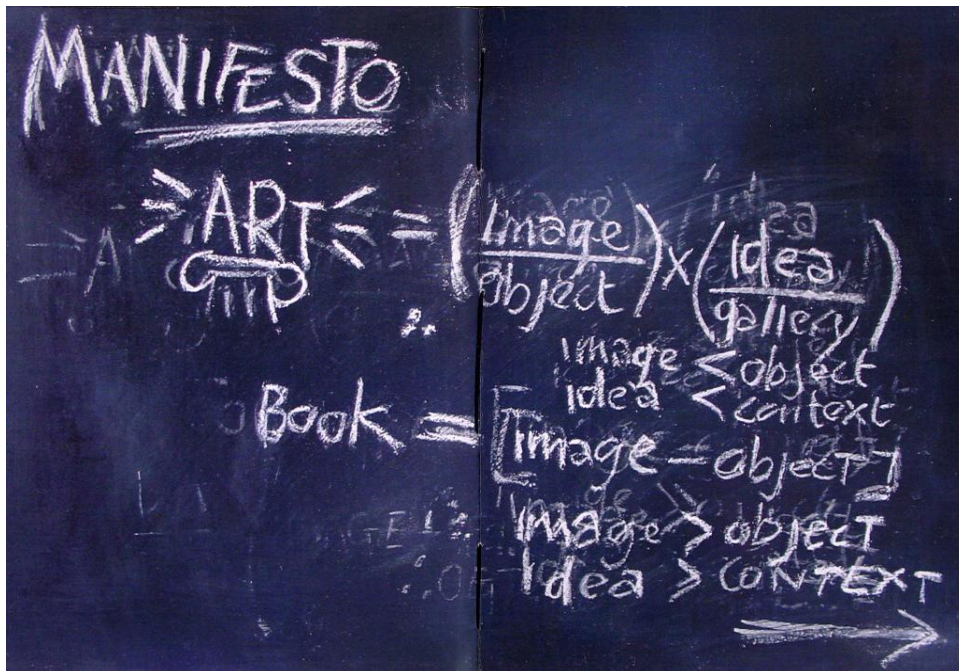 MANIFESTO
ART = (image/object) x (idea/gallery)
image < object
idea < context
Book = [Image = object]
image > object
Idea > CONTEXT